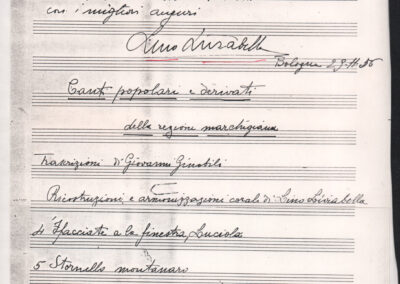 con i migliori auguri
Lino Liviabella
Bologna 29.11.56
Canti popolari e derivati
della regione marchigiana
Trascrizioni di Giovanni Ginobili
Ricostruzioni e armonizzazioni corali di Lino Liviabella
4 Affacciate a la finestra, Luciola
5 Stornello montanaro